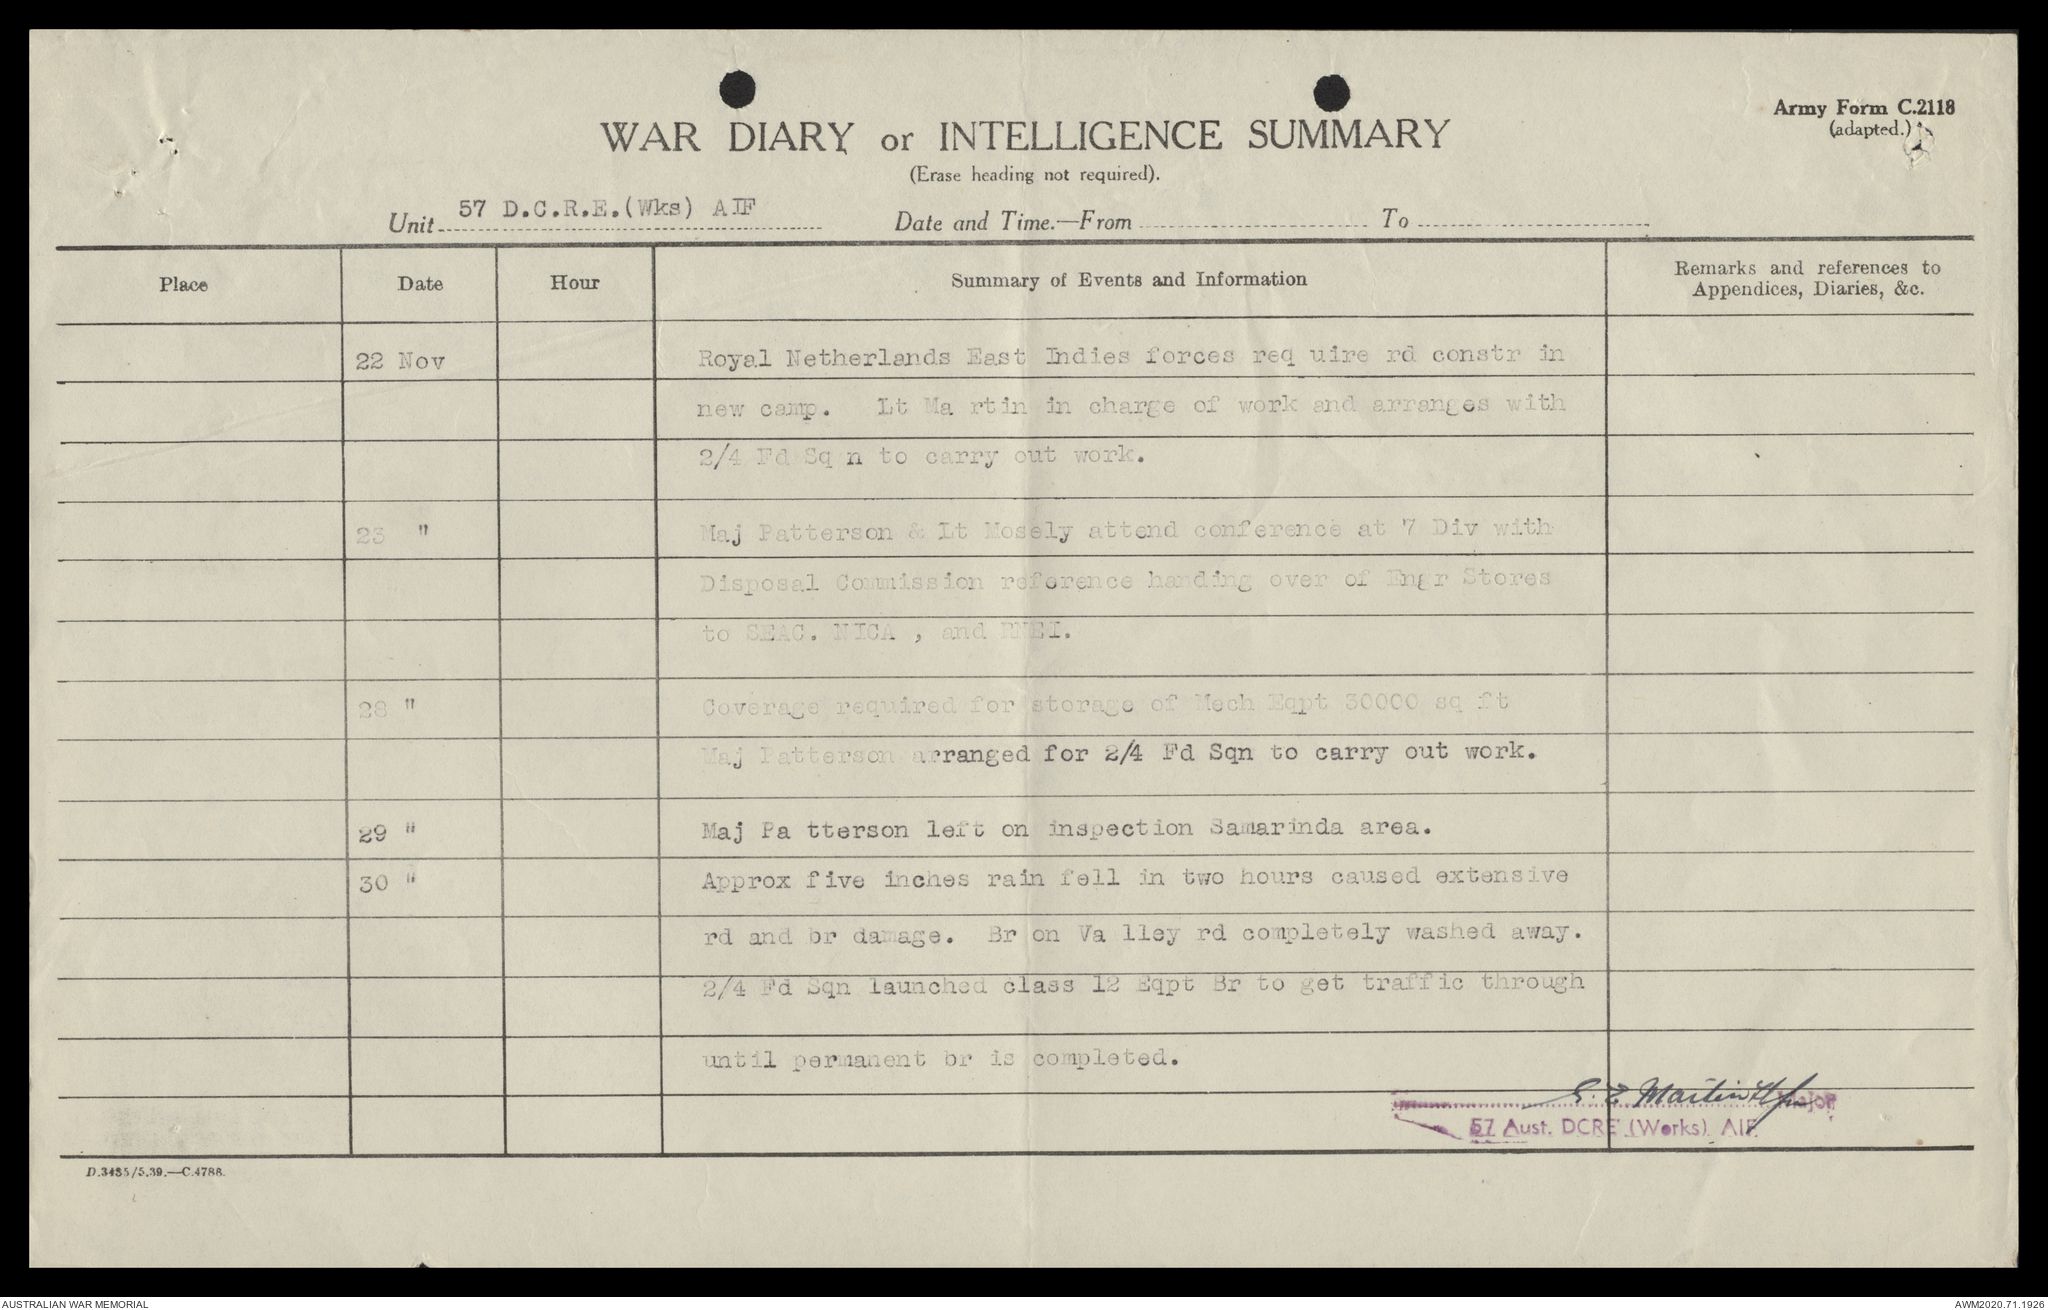 Army Form C.2118
(adapted.)
WAR DIARY or INTELLIGENCE SUMMARY
(Erase heading not required).
Unit 57 D.C.R.E.(Wks) AIF Date and Time.—From To
Place Date Hour Summary of Events and Information Remarks and references to Appendices, Diaries, &c.
22 Nov Royal Netherlands East Indies forces req uire rd constr in
new camp. Lt Ma rtin in charge of work and arranges with
2/4 Fd Sq n to carry out work.
23 " Maj Patterson & Lt Mosely attend conference at 7 Div with
Disposal Commission reference handing over of Engr Stores
to SEAC. NICA , and RNEI.
28 " Coverage required for storage of Mech Eqpt 30000 sq ft
Maj Patterson arranged for 2/4 Fd Sqn to carry out work.
29 " Maj Pa tterson left on inspection Samarinda area.
30 " Approx five inches rain fell in two hours caused extensive
rd and br damage. Br on Va lley rd completely washed away.
2/4 Fd Sqn launched class 12 Eqpt Br to get traffic through
until permanent br is completed.
Martin Major
57 Aust. DCRE (Works) AIF
D.3435/5.39.—C.4788.
AUSTRALIAN WAR MEMORIAL
AWM2020.71.1926